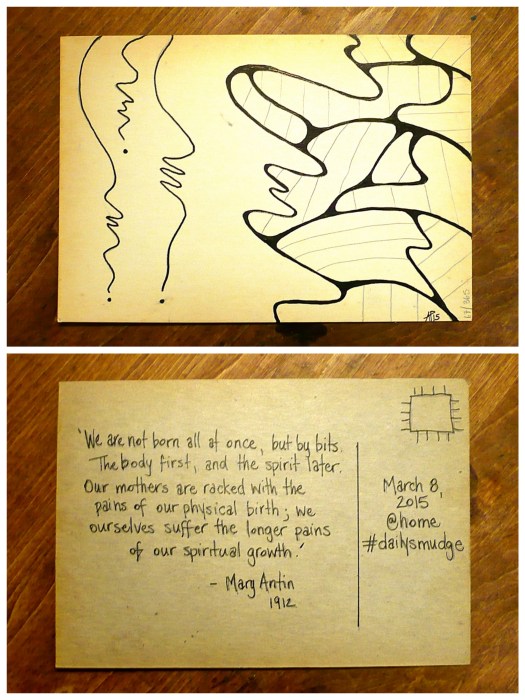 67/365
'We are not born all at once, but by bits.
The body first, and the spirit later.
Our mothers are racked with the
pains of our physical birth; we
ourselves suffer the longer pains
of our spiritual growth.'
- Mary Antin
1912
March 8,
2015
@home
#dailysmudge